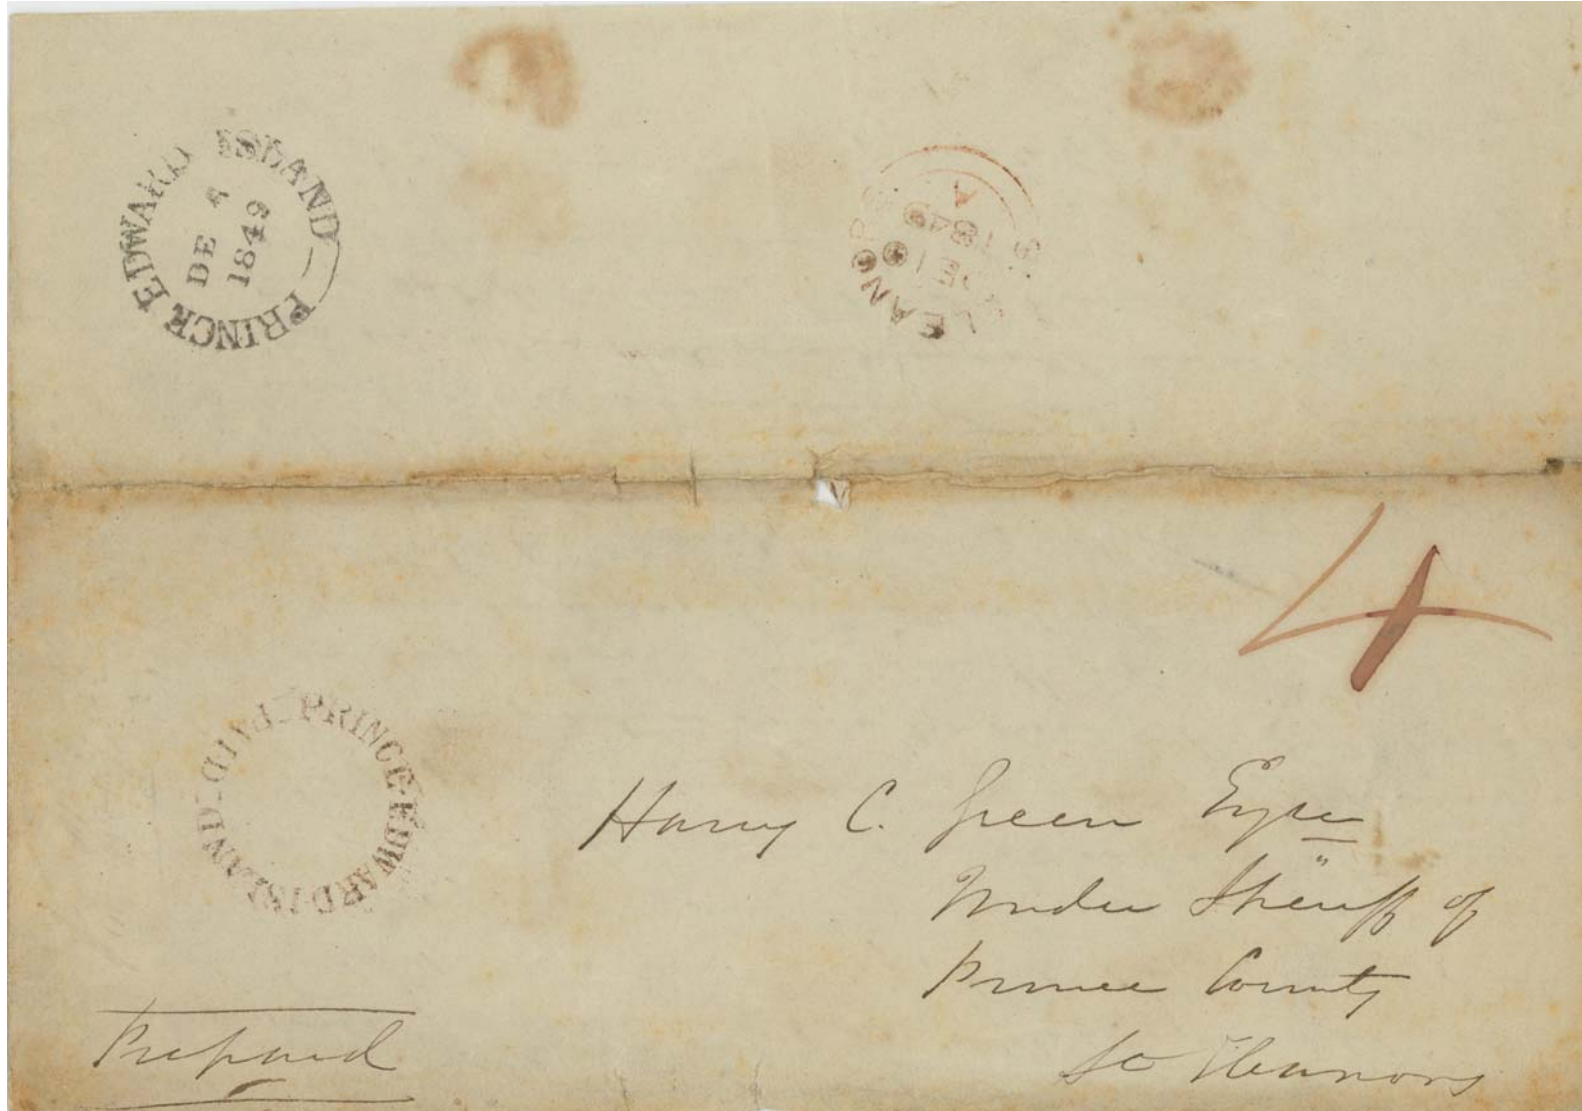 PRINCE EDWARD ISLAND
DE
1849
LEANO
1849
A
4
PAID PRINCE·EDWARD·ISLAND
Harry C. Green Esqre
Under Sheriff of
Prince County
St Eleanors
Prepaid